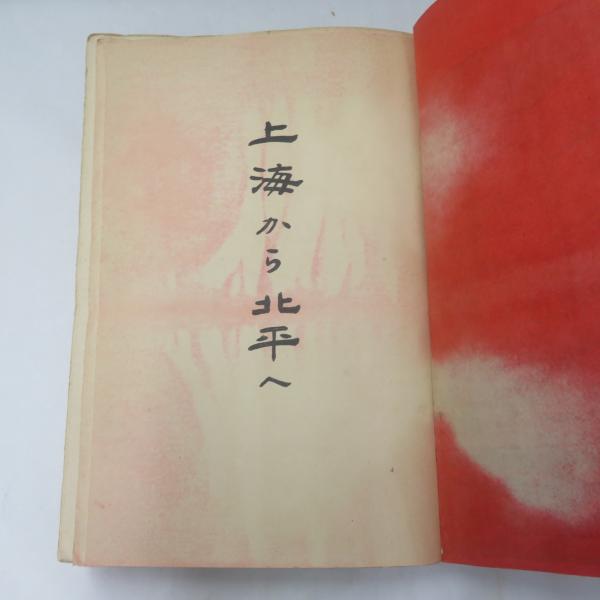 上海から北平へ